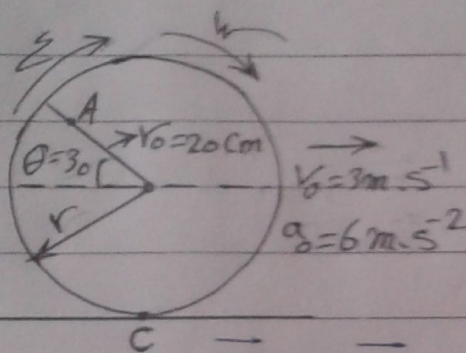 ε ω
A
r₀=20cm
θ=30
v₀=3m.s⁻¹
r
a₀=6m.s⁻²
C